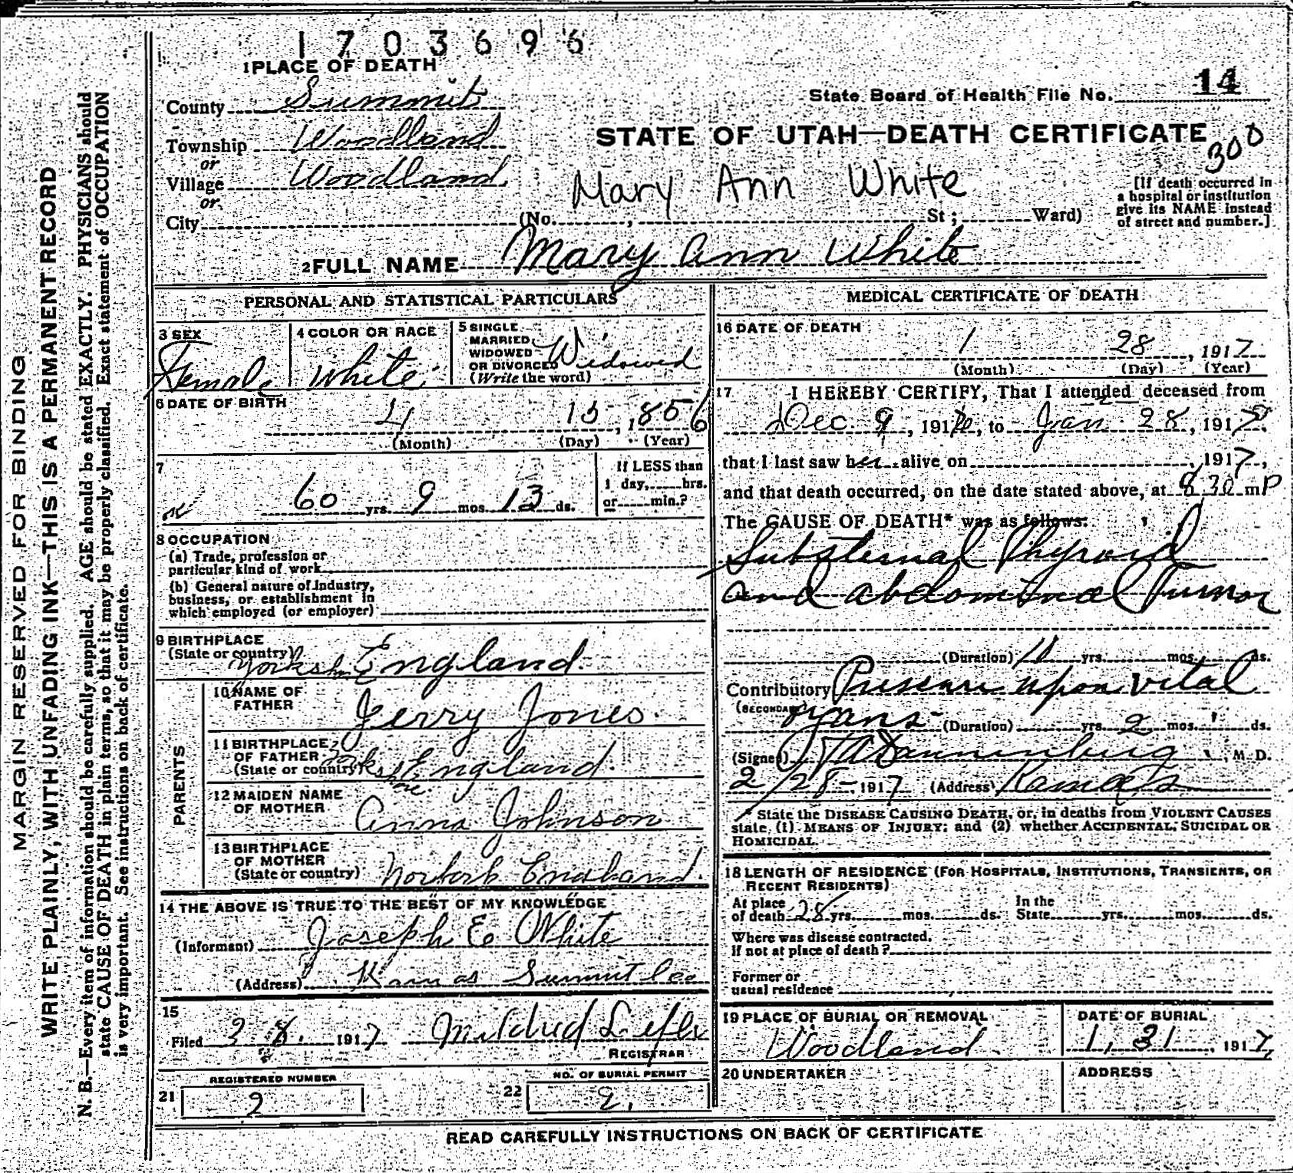 1703696
1 PLACE OF DEATH
County Summit
State Board of Health File No. 14
Township Woodland
or
Village Woodland
or
City
STATE OF UTAH—DEATH CERTIFICATE
300
Mary Ann White
(No. , St ; Ward)
[If death occurred in
a hospital or institution
give its NAME instead
of street and number.]
2 FULL NAME Mary Ann White
MARGIN RESERVED FOR BINDING
WRITE PLAINLY, WITH UNFADING INK—THIS IS A PERMANENT RECORD
N. B.—Every item of information should be carefully supplied. AGE should be stated EXACTLY. PHYSICIANS should
state CAUSE OF DEATH in plain terms, so that it may be properly classified. Exact statement of OCCUPATION
is very important. See instructions on back of certificate.
PERSONAL AND STATISTICAL PARTICULARS
3 SEX
Female
4 COLOR OR RACE
White
5 SINGLE
MARRIED
WIDOWED
OR DIVORCED
(Write the word)
Widowed
6 DATE OF BIRTH
4 15, 1856
(Month) (Day) (Year)
7
60 yrs. 9 mos. 13 ds.
If LESS than
1 day, hrs.
or min.?
8 OCCUPATION
(a) Trade, profession or
particular kind of work
(b) General nature of industry,
business, or establishment in
which employed (or employer)
9 BIRTHPLACE
(State or country) England
PARENTS
10 NAME OF
FATHER Jerry Jones
11 BIRTHPLACE
OF FATHER
(State or country) England
12 MAIDEN NAME
OF MOTHER Anna Johnson
13 BIRTHPLACE
OF MOTHER
(State or country)
14 THE ABOVE IS TRUE TO THE BEST OF MY KNOWLEDGE
(Informant) Joseph E White
(Address) Kamas Summit Co
15
Filed 2 8. 1917 Mildred
REGISTRAR
REGISTERED NUMBER
21 2
NO. OF BURIAL PERMIT
22 2.
MEDICAL CERTIFICATE OF DEATH
16 DATE OF DEATH
1 28, 1917
(Month) (Day) (Year)
17 I HEREBY CERTIFY, That I attended deceased from
Dec 9, 191 , to Jan 28, 1917
that I last saw her alive on , 1917,
and that death occurred, on the date stated above, at 8,30 m P
The CAUSE OF DEATH* was as follows:
Substernal Thyroid
and abdominal Tumor
(Duration) yrs. mos. ds.
Contributory Pressure upon vital
(SECONDARY) organs (Duration) yrs. 2 mos. ds.
(Signed) Dannenberg, M. D.
2/28-1917 (Address) Kamas
* State the DISEASE CAUSING DEATH, or, in deaths from VIOLENT CAUSES
state, (1) MEANS OF INJURY; and (2) whether ACCIDENTAL, SUICIDAL OR
HOMICIDAL.
18 LENGTH OF RESIDENCE (FOR HOSPITALS, INSTITUTIONS, TRANSIENTS, OR
RECENT RESIDENTS)
At place
of death 28 yrs. mos. ds.
In the
State yrs. mos. ds.
Where was disease contracted.
If not at place of death?
Former or
usual residence
19 PLACE OF BURIAL OR REMOVAL
Woodland
DATE OF BURIAL
1, 31, 1917,
20 UNDERTAKER
ADDRESS
READ CAREFULLY INSTRUCTIONS ON BACK OF CERTIFICATE